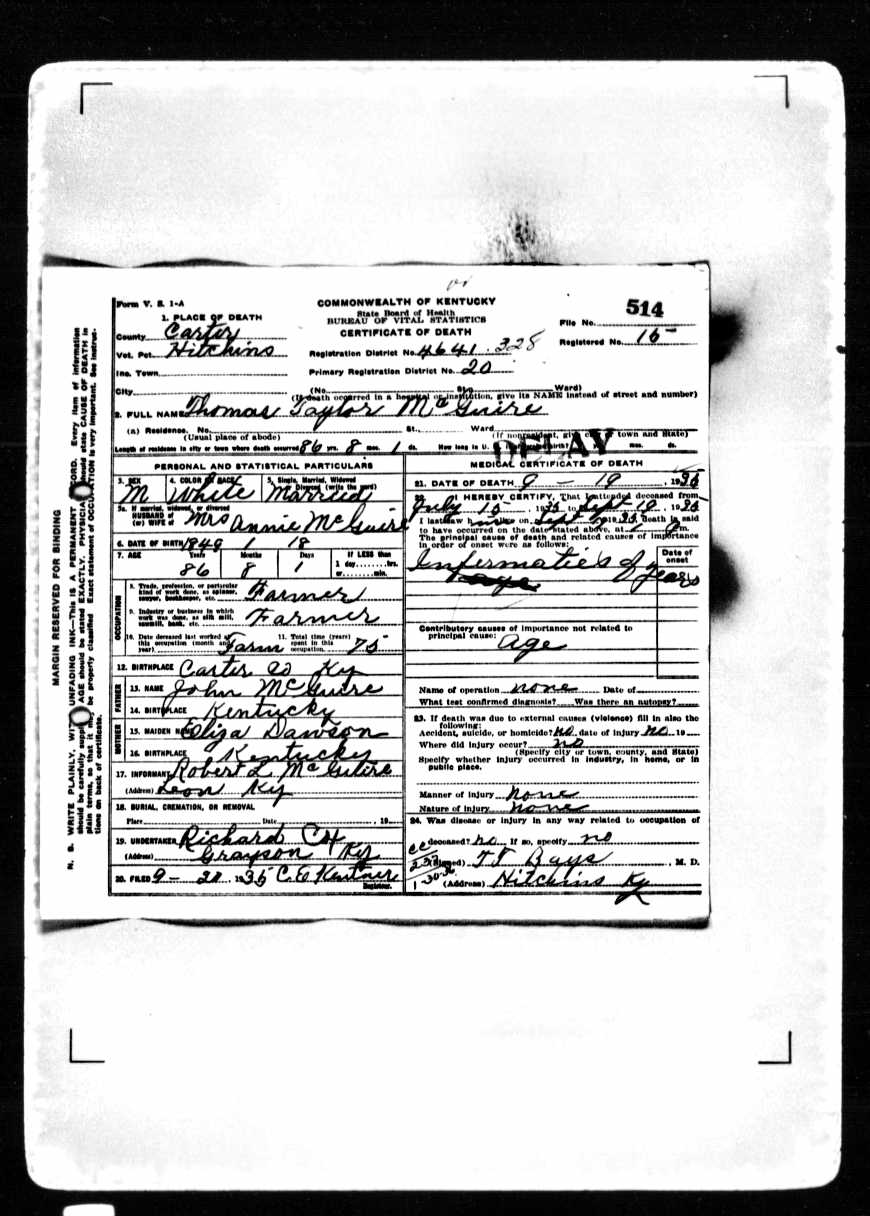 Form V. S. 1-A
COMMONWEALTH OF KENTUCKY
State Board of Health
BUREAU OF VITAL STATISTICS
CERTIFICATE OF DEATH
514
File No.
Registered No. 15
1. PLACE OF DEATH
County Carter
Vot. Pct. Hitchins
Registration District No. 4641 328
Inc. Town
Primary Registration District No. 20
City (No. St. Ward)
(If death occurred in a hospital or institution, give its NAME instead of street and number)
2. FULL NAME Thomas Taylor McGuire
(a) Residence. No. St., Ward
(Usual place of abode) (If nonresident, give city or town and State)
DELAY
Length of residence in city or town where death occurred 86 yrs. 8 mos. 1 ds. How long in U. S.
PERSONAL AND STATISTICAL PARTICULARS
3. SEX M
4. COLOR OR RACE White
5. Single, Married, Widowed or Divorced (write the word) Married
5a. If married, widowed, or divorced
HUSBAND of
(or) WIFE of Mrs Annie McGuire
6. DATE OF BIRTH 1849 1 18
7. AGE Years Months Days If LESS than
86 8 1 1 day hrs.
or min.
OCCUPATION
8. Trade, profession, or particular
kind of work done, as spinner,
sawyer, bookkeeper, etc. Farmer
9. Industry or business in which
work was done, as silk mill,
sawmill, bank, etc. Farmer
10. Date deceased last worked at
this occupation (month and
year) Farm
11. Total time (years)
spent in this
occupation. 75
12. BIRTHPLACE Carter Co Ky
FATHER
13. NAME John McGuire
14. BIRTHPLACE Kentucky
MOTHER
15. MAIDEN NAME Eliza Dawson
16. BIRTHPLACE Kentucky
17. INFORMANT Robert L McGuire
(Address) Leon Ky
18. BURIAL, CREMATION, OR REMOVAL
Place Date 19
19. UNDERTAKER Richard
(Address) Grayson Ky
20. FILED 9- 20, 1935 C. E.
Registrar.
MEDICAL CERTIFICATE OF DEATH
21. DATE OF DEATH 9 - 19 1935
22. I HEREBY CERTIFY, That I attended deceased from
July 15, 1935 to Sept 19, 1935
I last saw him alive on Sept 1935 death is said
to have occurred on the date stated above, at m.
The principal cause of death and related causes of importance
in order of onset were as follows:
Date of
onset
Infermaties of years
Contributory causes of importance not related to
principal cause:
Age
Name of operation none Date of
What test confirmed diagnosis? Was there an autopsy?
23. If death was due to external causes (violence) fill in also the
following:
Accident, suicide, or homicide? No date of injury No 19
Where did injury occur? no
(Specify city or town, county, and State)
Specify whether injury occurred in industry, in home, or in
public place.
Manner of injury none
Nature of injury none
24. Was disease or injury in any way related to occupation of
deceased? no If so, specify no
(Signed) T J Bays, M. D.
(Address) Hitchins Ky
MARGIN RESERVED FOR BINDING
N. B. WRITE PLAINLY, WITH UNFADING INK—THIS IS A PERMANENT RECORD. Every item of information
should be carefully supplied. AGE should be stated EXACTLY. PHYSICIANS should state CAUSE OF DEATH in
plain terms, so that it may be properly classified. Exact statement of OCCUPATION is very important. See instruc-
tions on back of certificate.